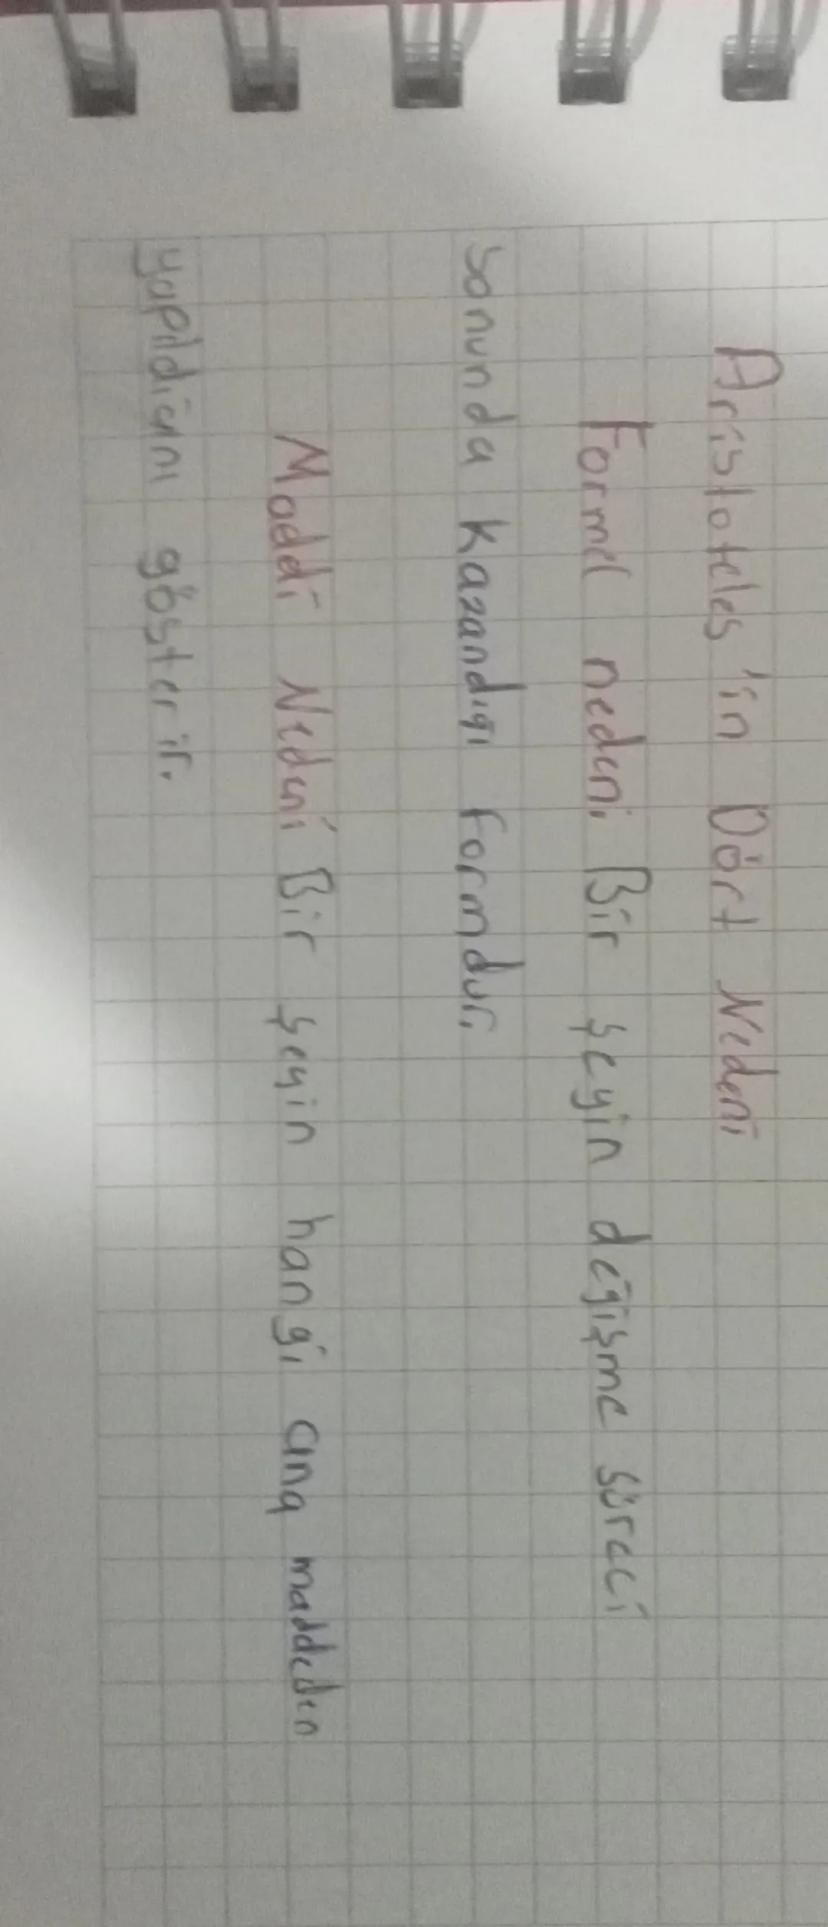 Aristoteles'in Dört Nedeni
Formel nedeni Bir şeyin değişme süreci
sonunda kazandığı formdur.
Maddi Nedeni Bir şeyin hangi ana maddeden
yapıldığını gösterir.